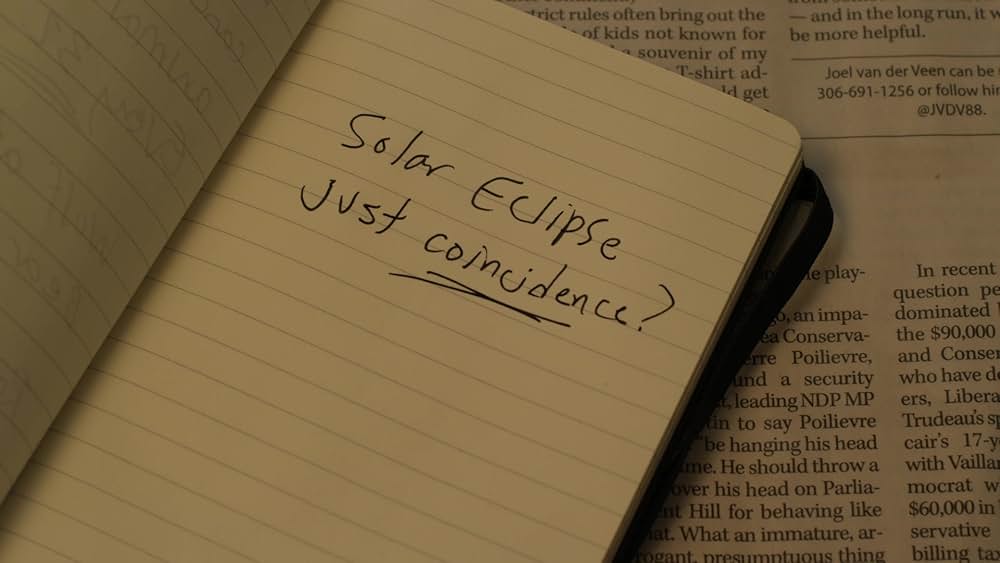 Solar Eclipse
Just coincidence?
trict rules often bring out the
of kids not known for
souvenir of my
T-shirt ad-
get
— and in the long run, it
be more helpful.
Joel van der Veen can be
306-691-1256 or follow
@JVDV88.
play-
an impa-
Conserva-
Poilievre,
a security
leading NDP MP
to say Poilievre
be hanging his head
He should throw a
over his head on Parlia-
Hill for behaving like
What an immature, ar-
rogant, presumptuous thing
In recent
question
dominated
the $90,000
and
who have
ers,
Trudeau's
cair's 17-
with
mocrat
$60,000 in
servative
billing